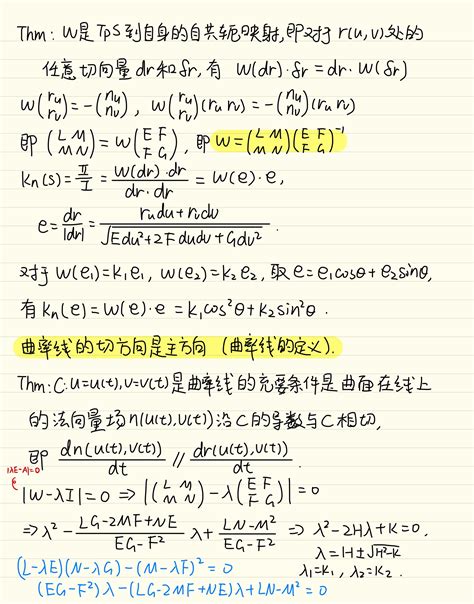 Thm: W是TpS到自身的自共轭映射,即对于r(u,v)处的
任意切向量dr和δr,有 W(dr)·δr=dr·W(δr)
W(ru rv)=-(nu nv), W(ru rv)(ru rv)=-(nu nv)(ru rv)
即 (L M M N)=W(E F F G), 即 W=(L M M N)(E F F G)⁻¹
kn(s)=Ⅱ/Ⅰ=W(dr)·dr/dr·dr=W(e)·e,
e=dr/|dr|=rudu+rvdv/√Edu²+2Fdudv+Gdv².
对于W(e₁)=k₁e₁, W(e₂)=k₂e₂, 取e=e₁cosθ+e₂sinθ,
有kn(e)=W(e)·e=k₁cos²θ+k₂sin²θ.
曲率线的切方向是主方向(曲率线的定义).
Thm:C:u=u(t),v=v(t)是曲率线的充要条件是曲面在线上
的法向量场n(u(t),v(t))沿C的导数与C相切,
即 dn(u(t),v(t))/dt // dr(u(t),v(t))/dt.
|λE-A|=0
|W-λI|=0 ⇒ |(L M M N)-λ(E F F G)|=0
⇒λ²-LG-2MF+NE/EG-F² λ+LN-M²/EG-F² ⇒ λ²-2Hλ+K=0.
λ=H±√H²-K
(L-λE)(N-λG)-(M-λF)²=0
λ₁=k₁, λ₂=k₂.
(EG-F²)λ-(LG-2MF+NE)λ+LN-M²=0